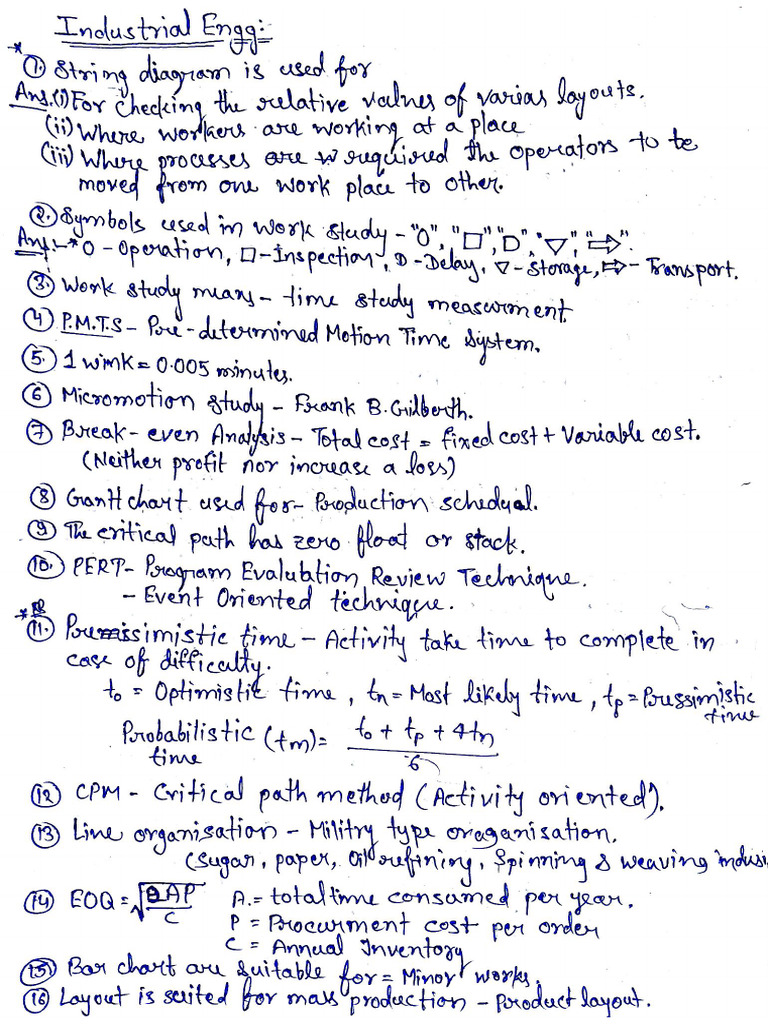 Industrial Engg:
* ①. String diagram is used for
Ans.(i) For checking the relative values of varias layouts.
(ii) Where workers are working at a place
(iii) Where processes are required the operators to be
moved from one work place to other.
②. Symbols used in work study - "O", "□", "D", "▽", "⇨".
Ans:- * O - Operation, □ - Inspection, D - Delay, ▽ - Storage, ⇨ - Transport.
③. Work study means - time study measurment.
④ P.M.T.S - Pre-determined Motion Time System.
⑤. 1 wink = 0.005 minutes.
⑥ Micromotion study - Frank B. Gilberth.
⑦ Break-even Analysis - Total cost = fixed cost + Variable cost.
(Neither profit nor increase a loss)
⑧ Gantt chart used for - Production schedyal.
⑨ The critical path has zero float or stack.
⑩. PERT - Program Evalubation Review Technique.
- Event Oriented technique.
* ⑪. Premissimistic time - Activity take time to complete in
case of difficulty.
to = Optimistic time, tn = Most likely time, tp = Pressimistic
time
Probabilistic (tm) = to + tp + 4tn
time 6
⑫ CPM - Critical path method (Activity oriented).
⑬ Line organisation - Militry type oraganisation.
(Sugar, paper, Oil refining, Spinning & weaving indus
⑭ EOQ = √2AP/C A. = total time consumed per year.
P = Procurment cost per order
C = Annual Inventory
⑮ Bar chart are suitable for = Minor works.
⑯ Layout is suited for mass production - Product layout.